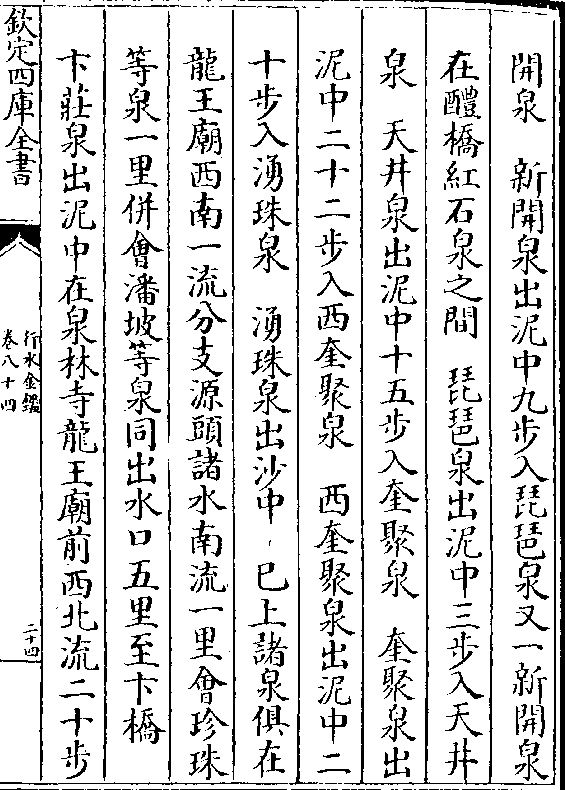 開泉　新開泉出泥中九步入琵琶泉又一新開泉
在醴橋紅石泉之間　琵琶泉出泥中三步入天井
泉　天井泉出泥中十五步入奎聚泉　奎聚泉出
泥中二十二步入西奎聚泉　西奎聚泉出泥中二
十步入湧珠泉　湧珠泉出沙中　巳上諸泉俱在
龍王廟西南一流分支源頭諸水南流一里會珍珠
等泉一里併會潘坡等泉同出水口五里至卞橋
卞莊泉出泥中在泉林寺龍王廟前西北流二十步
欽定四庫全書
行水金鑑
卷八十四
二十四